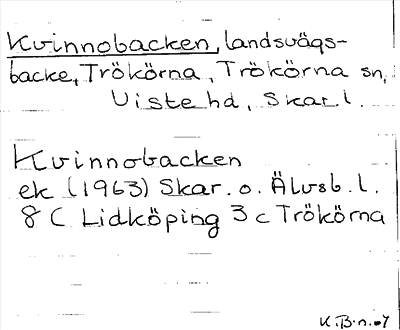 Kvinnobacken, landsvägs-
backe, Trökörna, Trökörna sn,
Viste hd, Skar. l.
Kvinnobacken
ek (1963) Skar. o. Älvsb. l.
8 C Lidköping 3 c Trökörna
K. B-n.